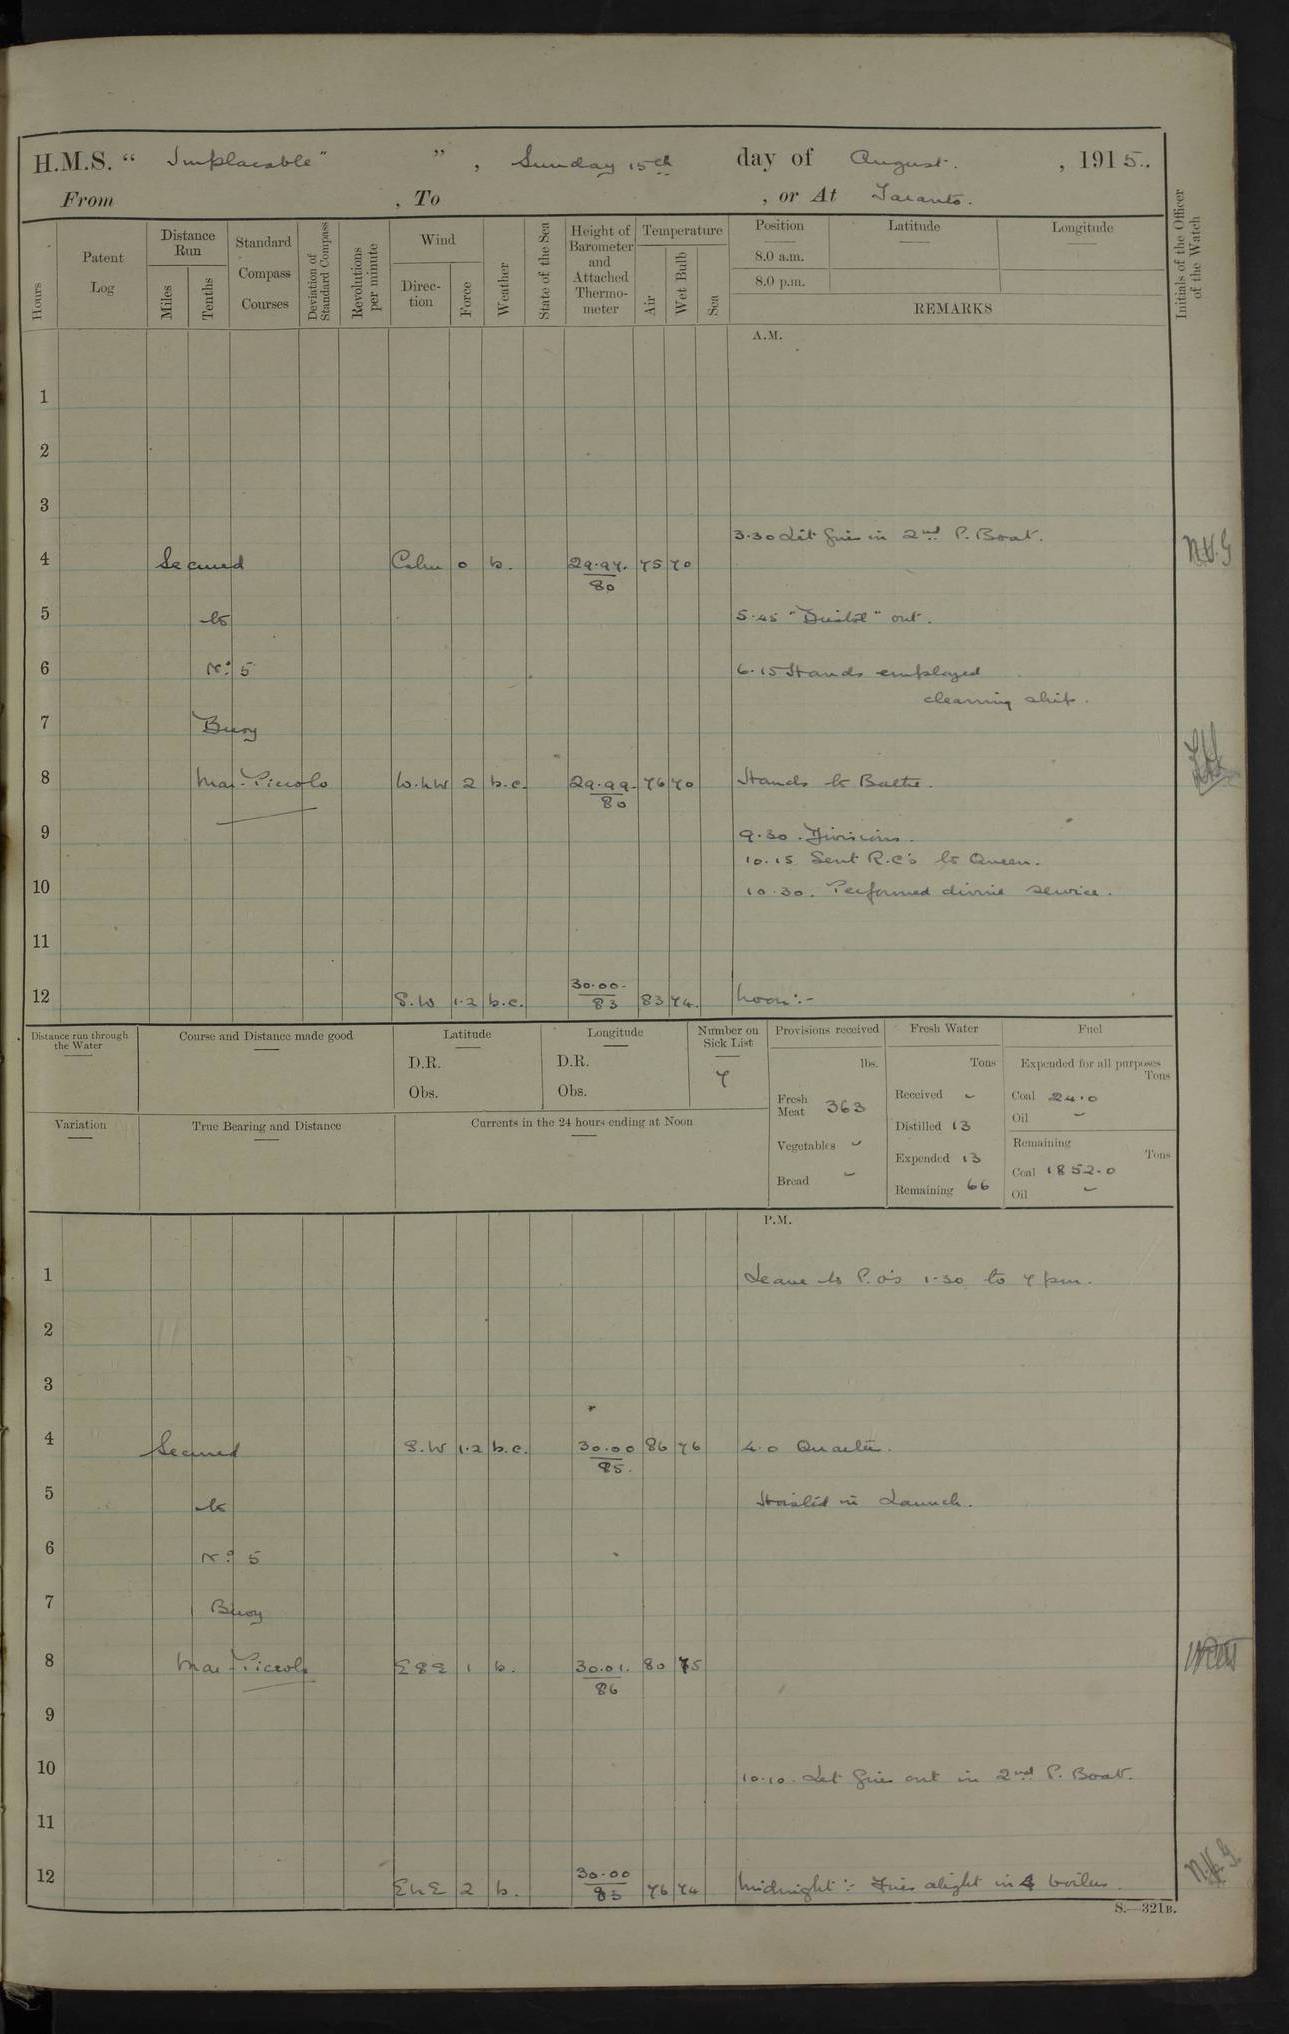 H.M.S. “ Implacable” ” , Sunday 15th day of August. , 1915.
From , To , or At Taranto.
Hours
Patent Log
Distance Run
Miles
Tenths
Standard Compass Courses
Deviation of Standard Compass
Revolutions per minute
Wind
Direction
Force
Weather
State of the Sea
Height of Barometer and Attached Thermometer
Temperature
Air
Wet Bulb
Sea
Position
8.0 a.m.
8.0 p.m.
Latitude
Longitude
REMARKS
Initials of the Officer of the Watch
A.M.
1
2
3
3.30 Lit fires in 2nd P. Boat.
4 Secured Calm 0 b. 29.97. 75 70
80
5 to 5.45 "Bristol" out.
6 No. 5 6.15 Hands employed
cleaning ship.
7 Buoy
8 Mar Piccolo W.NW 2 b.c. 29.99. 76 70 Hands to Bathe.
80
9 9.30. Divisions.
10.15 Sent R.C's to Queen.
10 10.30. Performed divine service.
11
12 S.W 1.2 b.c. 30.00. 83 74. Noon:-
83
Distance run through the Water
Course and Distance made good
Latitude
D.R.
Obs.
Longitude
D.R.
Obs.
Number on Sick List
7
Provisions received
lbs.
Fresh Meat 363
Vegetables -
Bread -
Fresh Water
Tons
Received -
Distilled 13
Expended 13
Remaining 66
Fuel
Expended for all purposes
Tons
Coal 24.0
Oil -
Remaining
Tons
Coal 1852.0
Oil -
Variation
True Bearing and Distance
Currents in the 24 hours ending at Noon
P.M.
1 Leave to P.O's 1.30 to 7 pm.
2
3
4 Secured S.W 1.2 b.c. 30.00 86 76 4.0 Quarters.
85.
5 to Hoisted in Launch.
6 No. 5
7 Buoy
8 Mar Piccolo ESE 1 b. 30.01. 80 75
86
9
10 10.10. Let fires out in 2nd P. Boat.
11
12 ENE 2 b. 30.00 76 74 Midnight:- Fires alight in 4 boilers.
83
S.—321B.